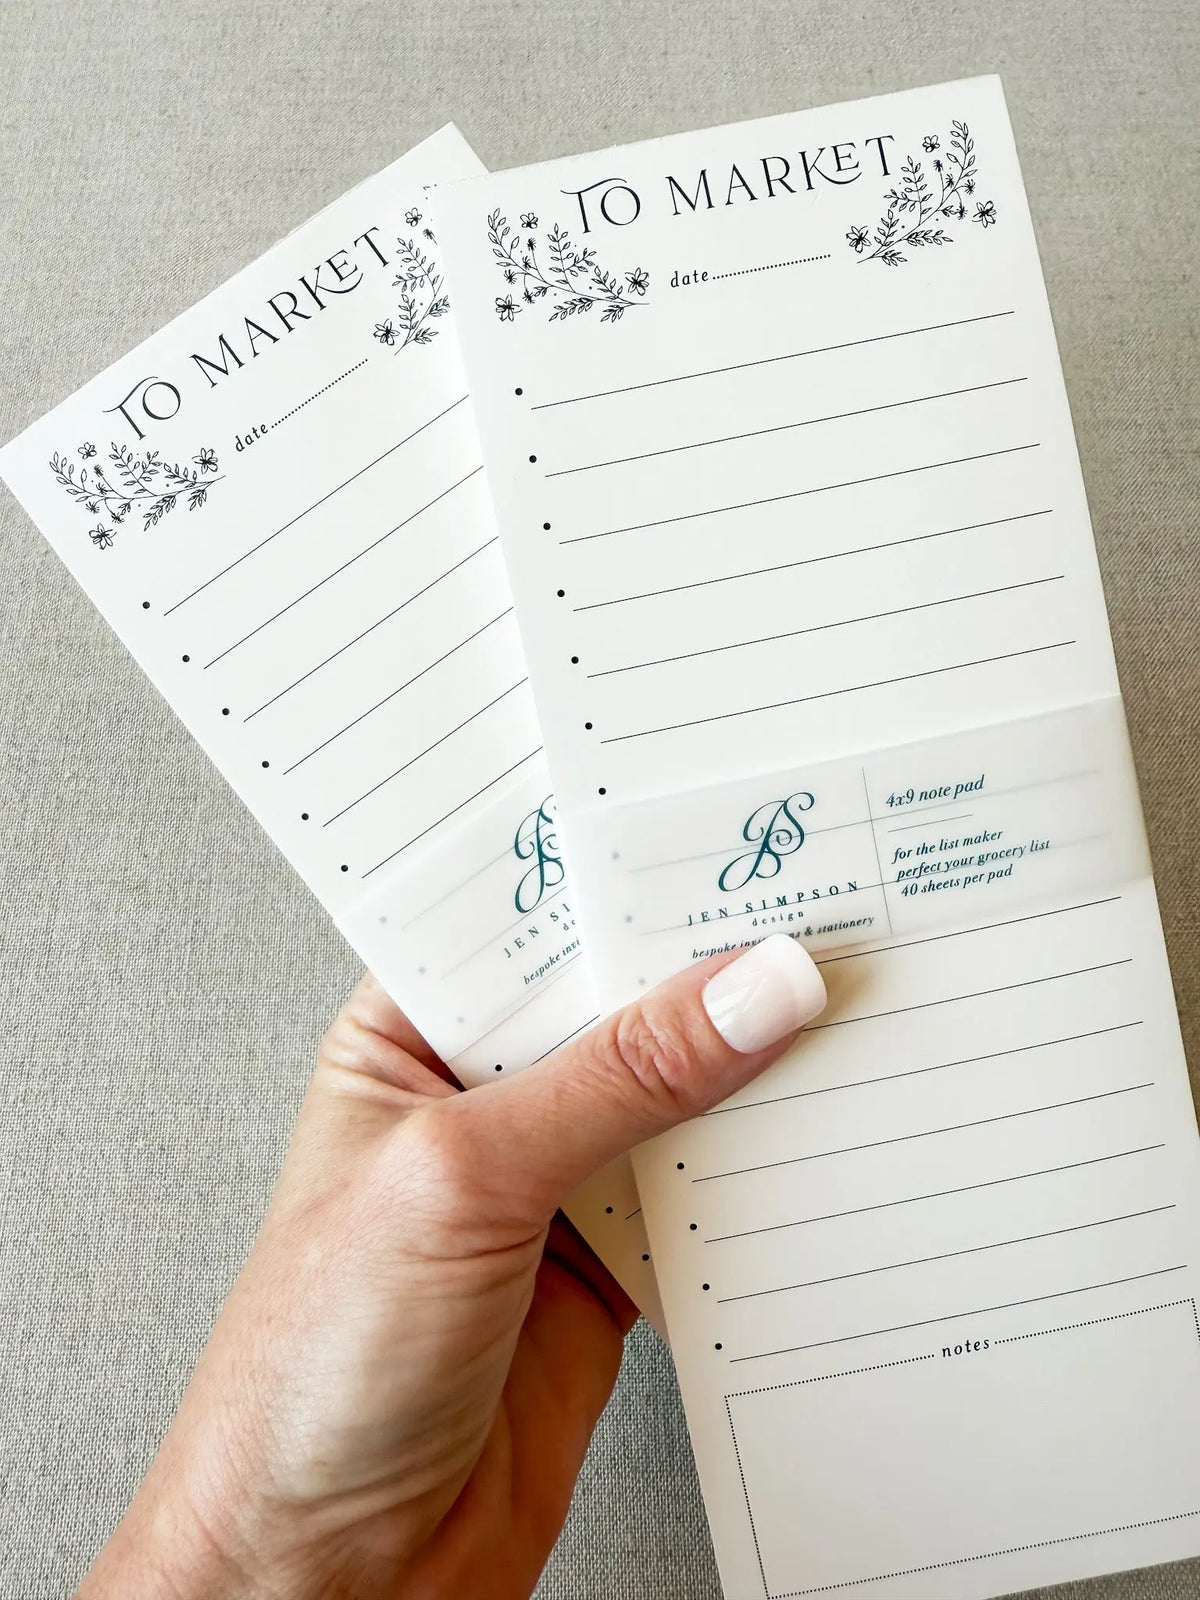 TO MARKET
date
JEN SI
bespoke invi
TO MARKET
date
JS
JEN SIMPSON
design
bespoke & stationery
4x9 note pad
for the list maker
perfect your grocery list
40 sheets per pad
notes